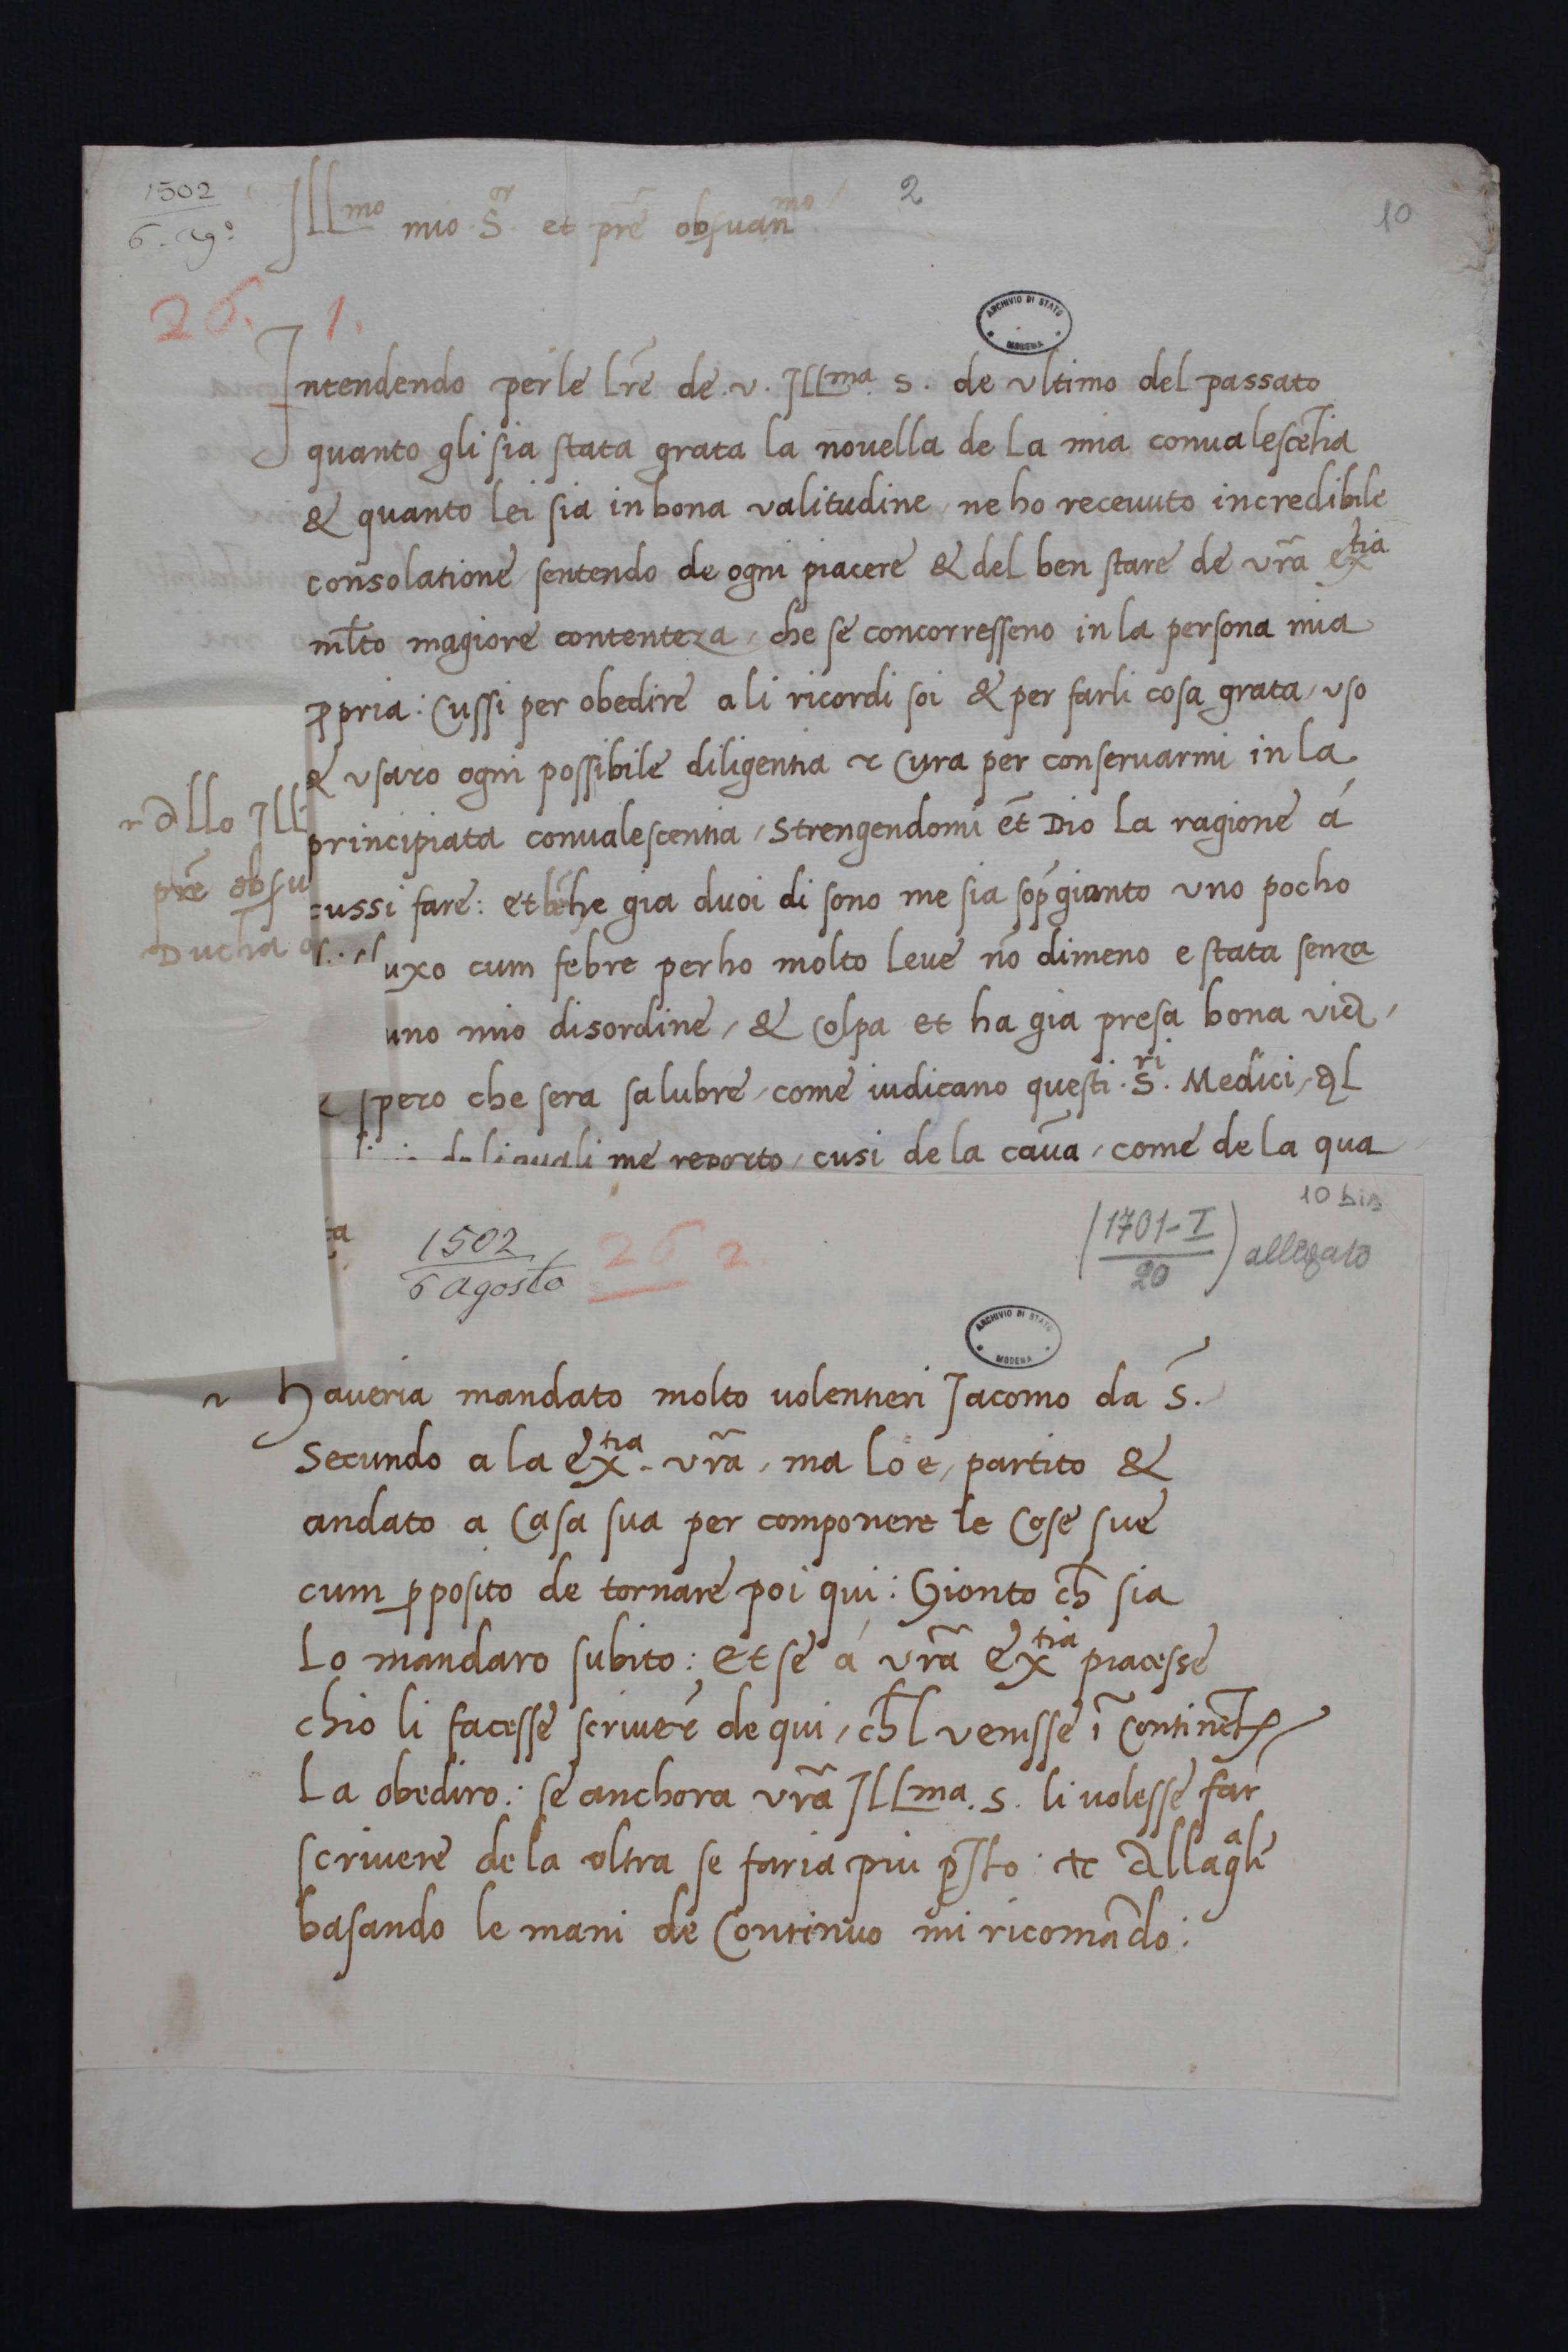 1502
6. Ago
2
10
Illmo mio Sor et prē obsuanmo
26. 1.
ARCHIVIO DI STATO
MODENA
Intendendo per le lrē de v. Illma S. de ultimo del passato
quanto gli sia stata grata la novella de la mia convalescētia
& quanto lei sia in bona valitudine ne ho recevuto incredibile
consolatione sentendo de ogni piacere & del ben stare de vrā extia
mlto magiore contenteza, che se concorresseno in la persona mia
ppria: Cussi per obedire a li ricordi soi & per farli cosa grata, uso
& usaro ogni possibile diligentia & cura per conservarmi in la
principiata convalescentia, Strengendomi ēt Dio la ragione á
cussi fare: et bēche gia duoi di sono me sia sopgiunto uno pocho
uxo cum febre perho molto leve nō dimeno e stata senza
uno mio disordine, & Colpa et ha gia presa bona via,
spero che sera salubre, come iudicano questi Sri. Medici, al
de li quali me reporto, cusi de la cauā, come de la qua
Allo Ill
prē obsu
Ducha
ta
1502
6 agosto
26 2.
(1701-I
20) allegato
10 bis
ARCHIVIO DI STATO
MODENA
Haveria mandato molto volentieri Jacomo da S.
Secundo a la extia vrā, ma lo e, partito &
andato a Casa sua per componere le Cose sue
cum pposito de tornare poi qui: Gionto ch sia
Lo mandaro subito: Et se á vrā extia piacesse
chio li facesse scrivere de qui, chl venisse ī Continēti
La obediro: se anchora vrā Illma. S. li volesse far
scrivere de la oltra se faria piu psto: Et Alla qle
basando le mani de Continuo mi ricomādo: